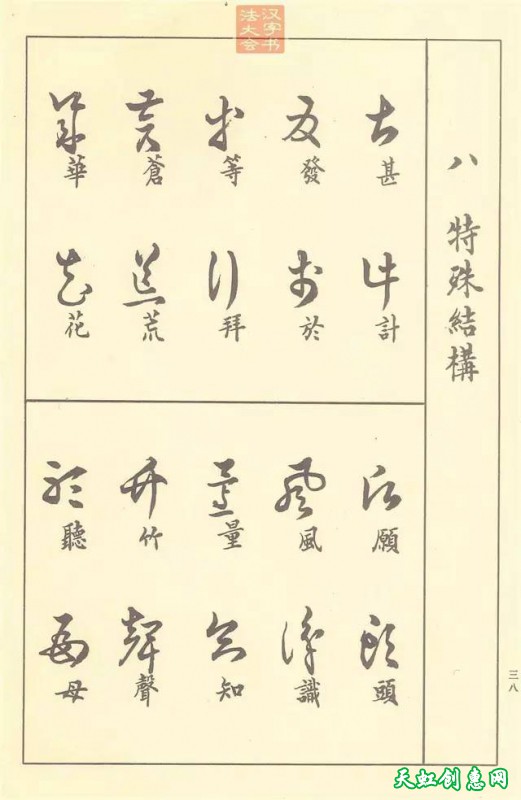 汉字书
法大会
八 特殊結構
甚 計
發 於
等 拜
蒼 荒
華 花
願 頭
風 識
量 知
竹 聲
聽 母
三八
天虹创惠网